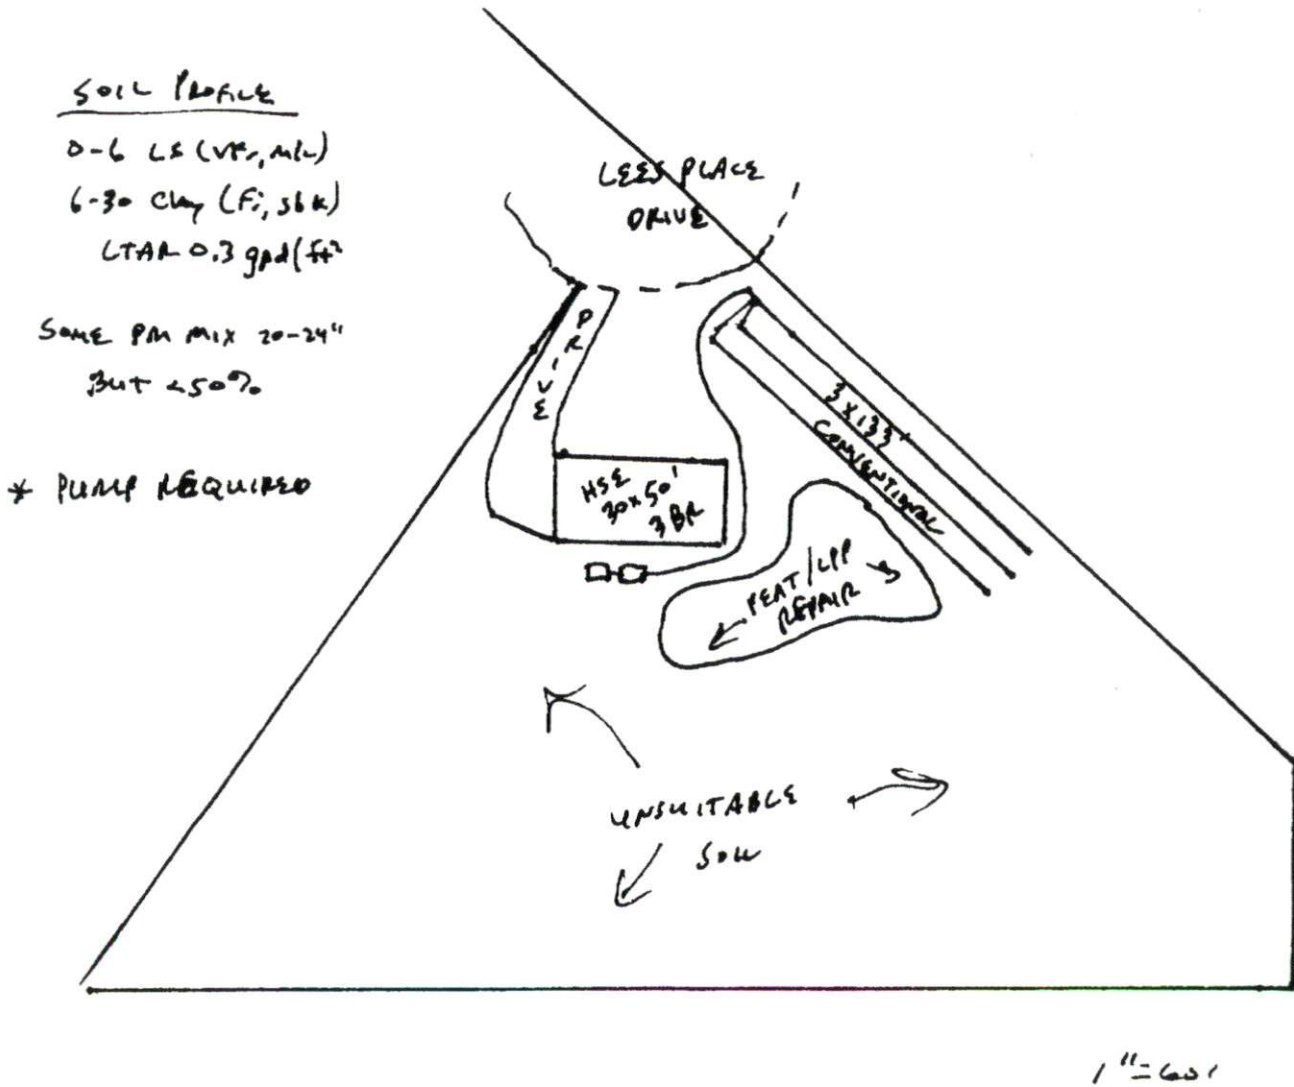 SOIL PROFILE
0-6 LS (vfr, m/c)
6-30 Clay (Fi, sbk)
LTAR 0.3 gpd/ft²
SOME PM MIX 20-24"
But <50%
* PUMP REQUIRED
LEES PLACE
DRIVE
DRIVE
HSE
30x50'
3 BR
3x133'
CONVENTIONAL
PEAT/LPP
REPAIR
UNSUITABLE
SOIL
1"=60'